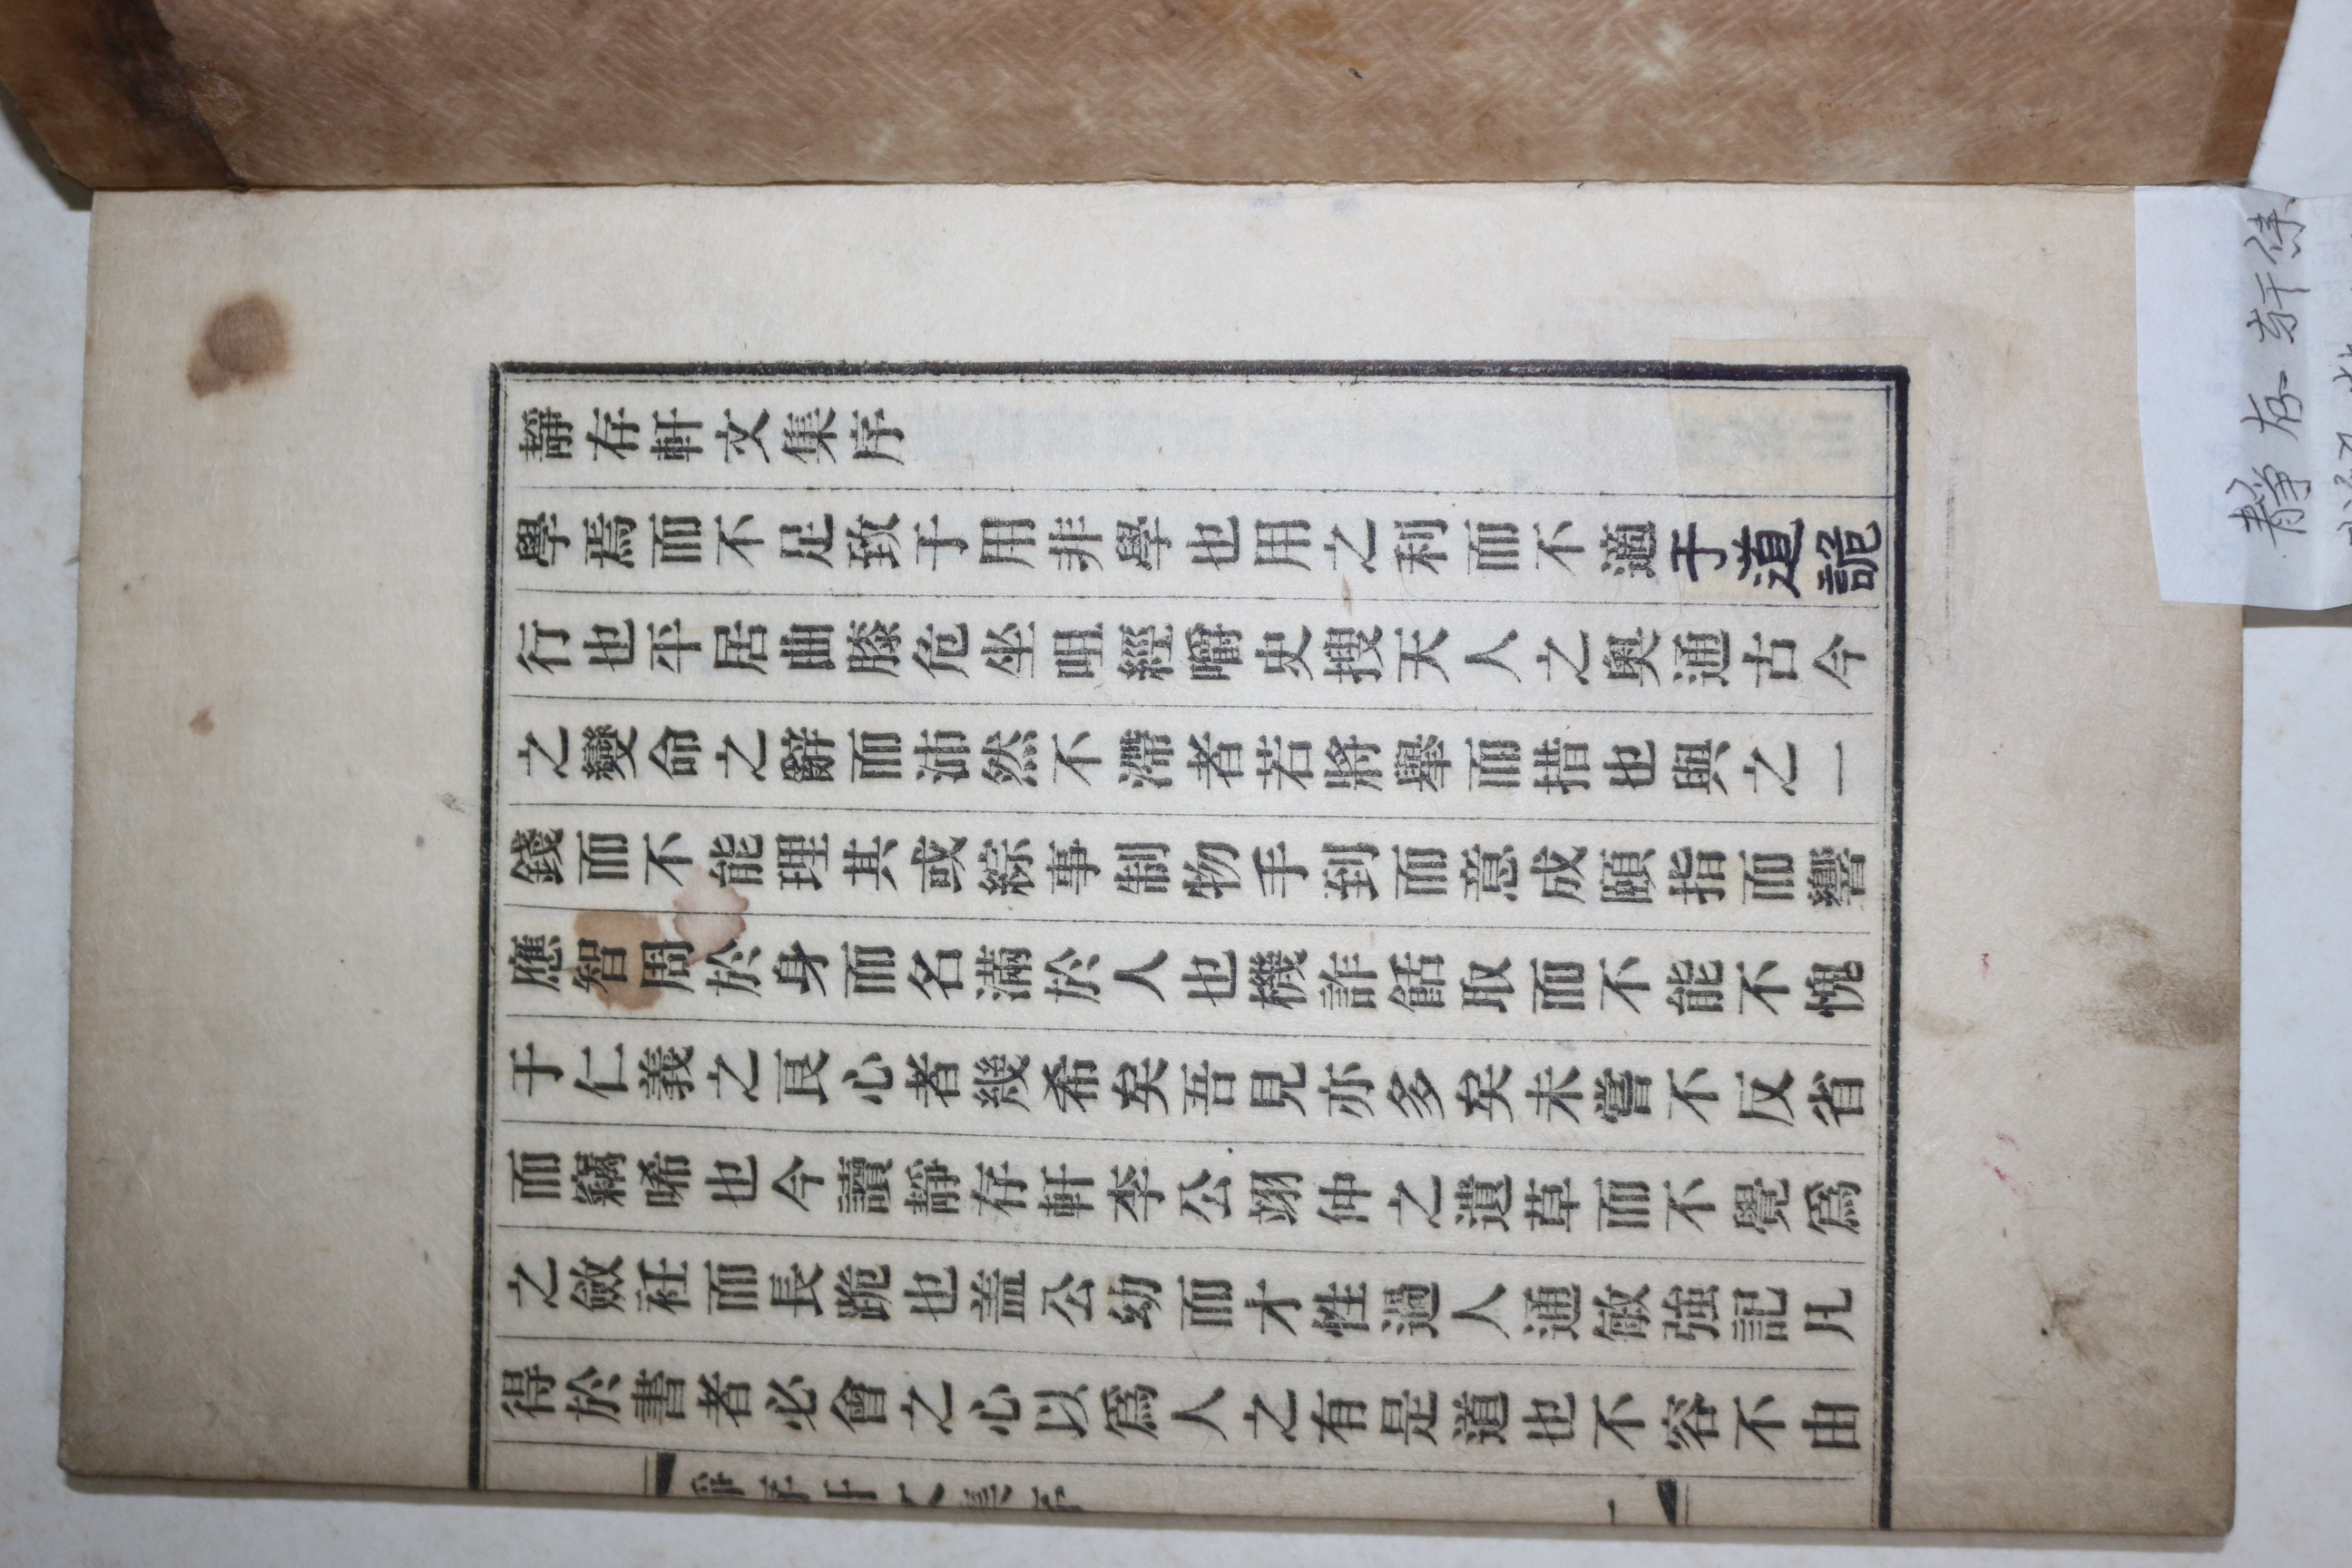 靜存軒文集序
學焉而不足致于用非學也用之利而不適于道詭
行也平居曲膝危坐咀經嚼史搜天人之奧通古今
之變命之辭而沛然不滯者若將舉而措也與之一
錢而不能理其或綜事制物手到而意成頤指而響
應智周於身而名滿於人也機詐餂取而不能不愧
于仁義之良心者幾希矣吾見亦多矣未嘗不反省
而竊唏也今讀靜存軒李公翊仲之遺草而不覺爲
之斂衽而長跪也盖公幼而才性過人通敏強記凡
得於書者必會之心以爲人之有是道也不容不由
靜存軒文集序
一
靜存軒集